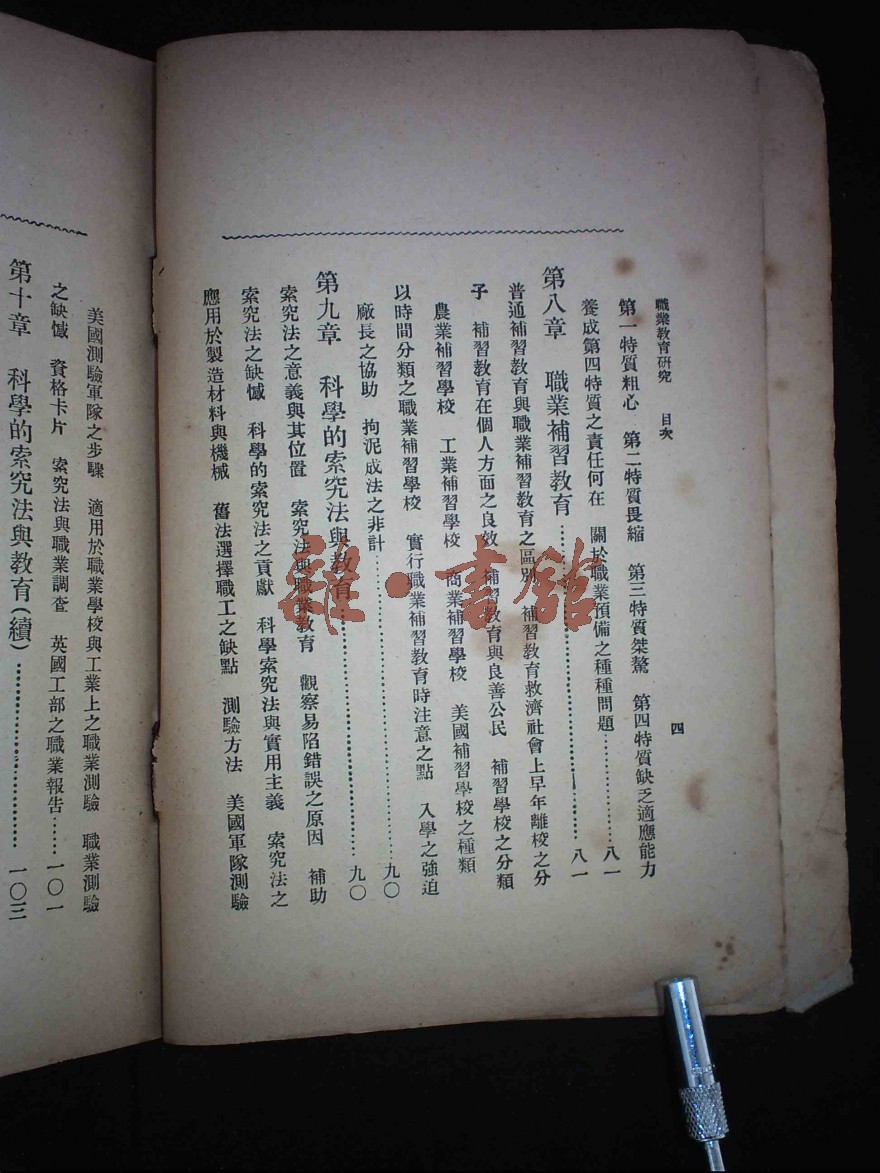 職業教育研究　目次　四
第一特質粗心　第二特質畏縮　第三特質桀驁　第四特質缺乏適應能力
養成第四特質之責任何在　關於職業預備之種種問題…………八一
第八章　職業補習教育…………八一
普通補習教育與職業補習教育之區別　補習教育救濟社會上早年離校之分
子　補習教育在個人方面之良效　補習教育與良善公民　補習學校之分類
農業補習學校　工業補習學校　商業補習學校　美國補習學校之種類
以時間分類之職業補習學校　實行職業補習教育時注意之點　入學之強迫
廠長之協助　拘泥成法之非計…………九〇
第九章　科學的索究法與教育…………九〇
索究法之意義與其位置　索究法與職業教育　觀察易陷錯誤之原因　補助
索究法之缺憾　科學的索究法之貢獻　科學索究法與實用主義　索究法之
應用於製造材料與機械　舊法選擇職工之缺點　測驗方法　美國軍隊測驗
美國測驗軍隊之步驟　適用於職業學校與工業上之職業測驗　職業測驗
之缺憾　資格卡片　索究法與職業調查　英國工部之職業報告……一〇一
第十章　科學的索究法與教育(續)…………一〇三
雜·書館